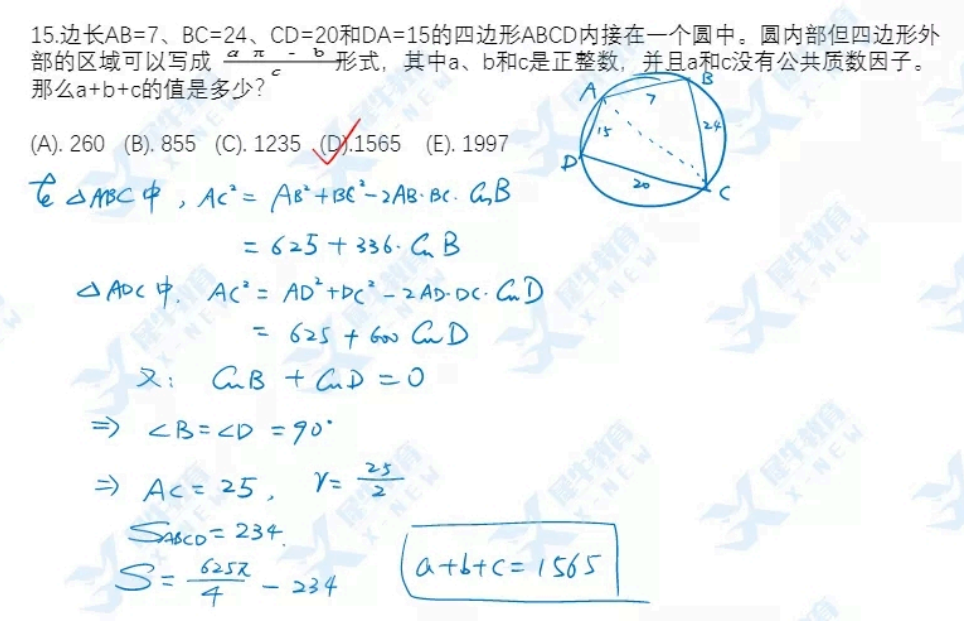 15.边长AB=7、BC=24、CD=20和DA=15的四边形ABCD内接在一个圆中。圆内部但四边形外
部的区域可以写成 (aπ - b)/c 形式，其中a、b和c是正整数，并且a和c没有公共质数因子。
那么a+b+c的值是多少？
(A). 260 (B). 855 (C). 1235 (D).1565 (E). 1997
A
B
7
15
24
D
20
C
在△ABC中，AC²= AB²+BC²-2AB·BC·CosB
= 625+336·CosB
△ADC中. AC²= AD²+DC²-2AD·DC·CosD
= 625+600 CosD
又: CosB + CosD = 0
⇒ ∠B=∠D =90°
⇒ AC= 25, r= 25/2
S_ABCD= 234.
S= 625π/4 - 234
a+b+c=1565
犀牛教育
X-NEW